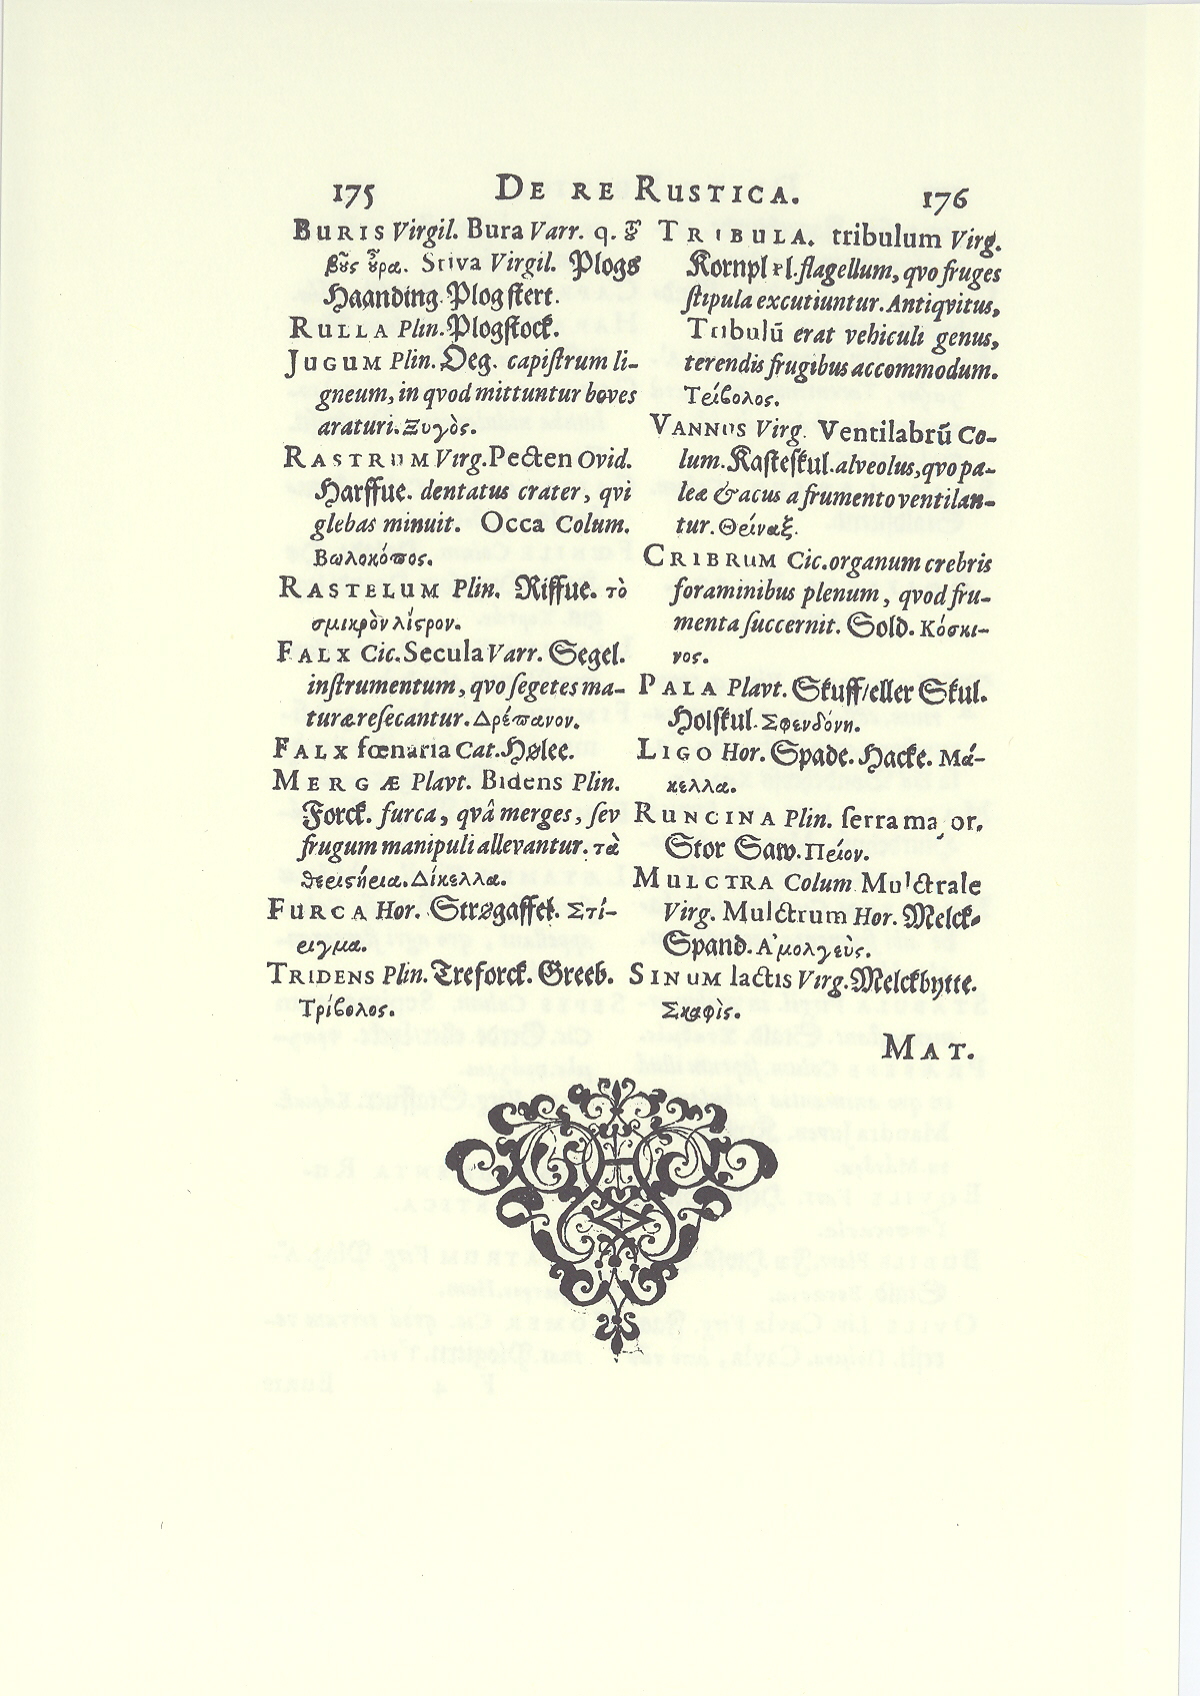 175 DE RE RUSTICA. 176
BURIS Virgil. Bura Varr. q. ꝸ
βȣ̃ς ȣ̓ρα. Stiva Virgil. Plogs
Haanding. Plogstert.
RULLA Plin. Plogstock.
JUGUM Plin. Oeg. capiſtrum li-
gneum, in qvod mittuntur boves
araturi. Ξυγὸς.
RASTRUM Virg. Pecten Ovid.
Harffue. dentatus crater, qvi
glebas minuit. Occa Colum.
Βωλοκόπος.
RASTELUM Plin. Riffue. τὸ
σμικρὸν λίϛρον.
FALX Cic. Secula Varr. Segel.
inſtrumentum, qvo ſegetes ma-
turæ reſecantur. Δρέπανον.
FALX fœnaria Cat. Hølee.
MERGÆ Plavt. Bidens Plin.
Forck. furca, qvâ merges, ſev
frugum manipuli allevantur. τὰ
Δίκελλα.
FURCA Hor. Strøgaffel. Στί-
ειγμα.
TRIDENS Plin. Treforck. Greeb.
Τρίβολος.
TRIBULA. tribulum Virg.
flagellum, qvo fruges
ſtipula excutiuntur. Antiqvitus,
Tribulū erat vehiculi genus,
terendis frugibus accommodum.
Τείβολος.
VANNUS Virg. Ventilabrū Co-
lum. Kaſteſkul. alveolus, qvo pa-
leæ & acus a frumento ventilan-
tur. Θείναξ.
CRIBRUM Cic. organum crebris
foraminibus plenum, qvod fru-
menta ſuccernit. Sold. Κόσκι-
νος.
PALA Plavt. Skuff/eller Skul.
Holſkul. Σφενδόνη.
LIGO Hor. Spade. Hacke. Μά-
κελλα.
RUNCINA Plin. ſerra major.
Stor Saw. Πείον.
MULCTRA Colum Mulctrale
Virg. Mulctrum Hor. Melck-
Spand. Ἀμολγεὺς.
SINUM lactis Virg. Melckbytte.
Σκαφὶς.
MAT.